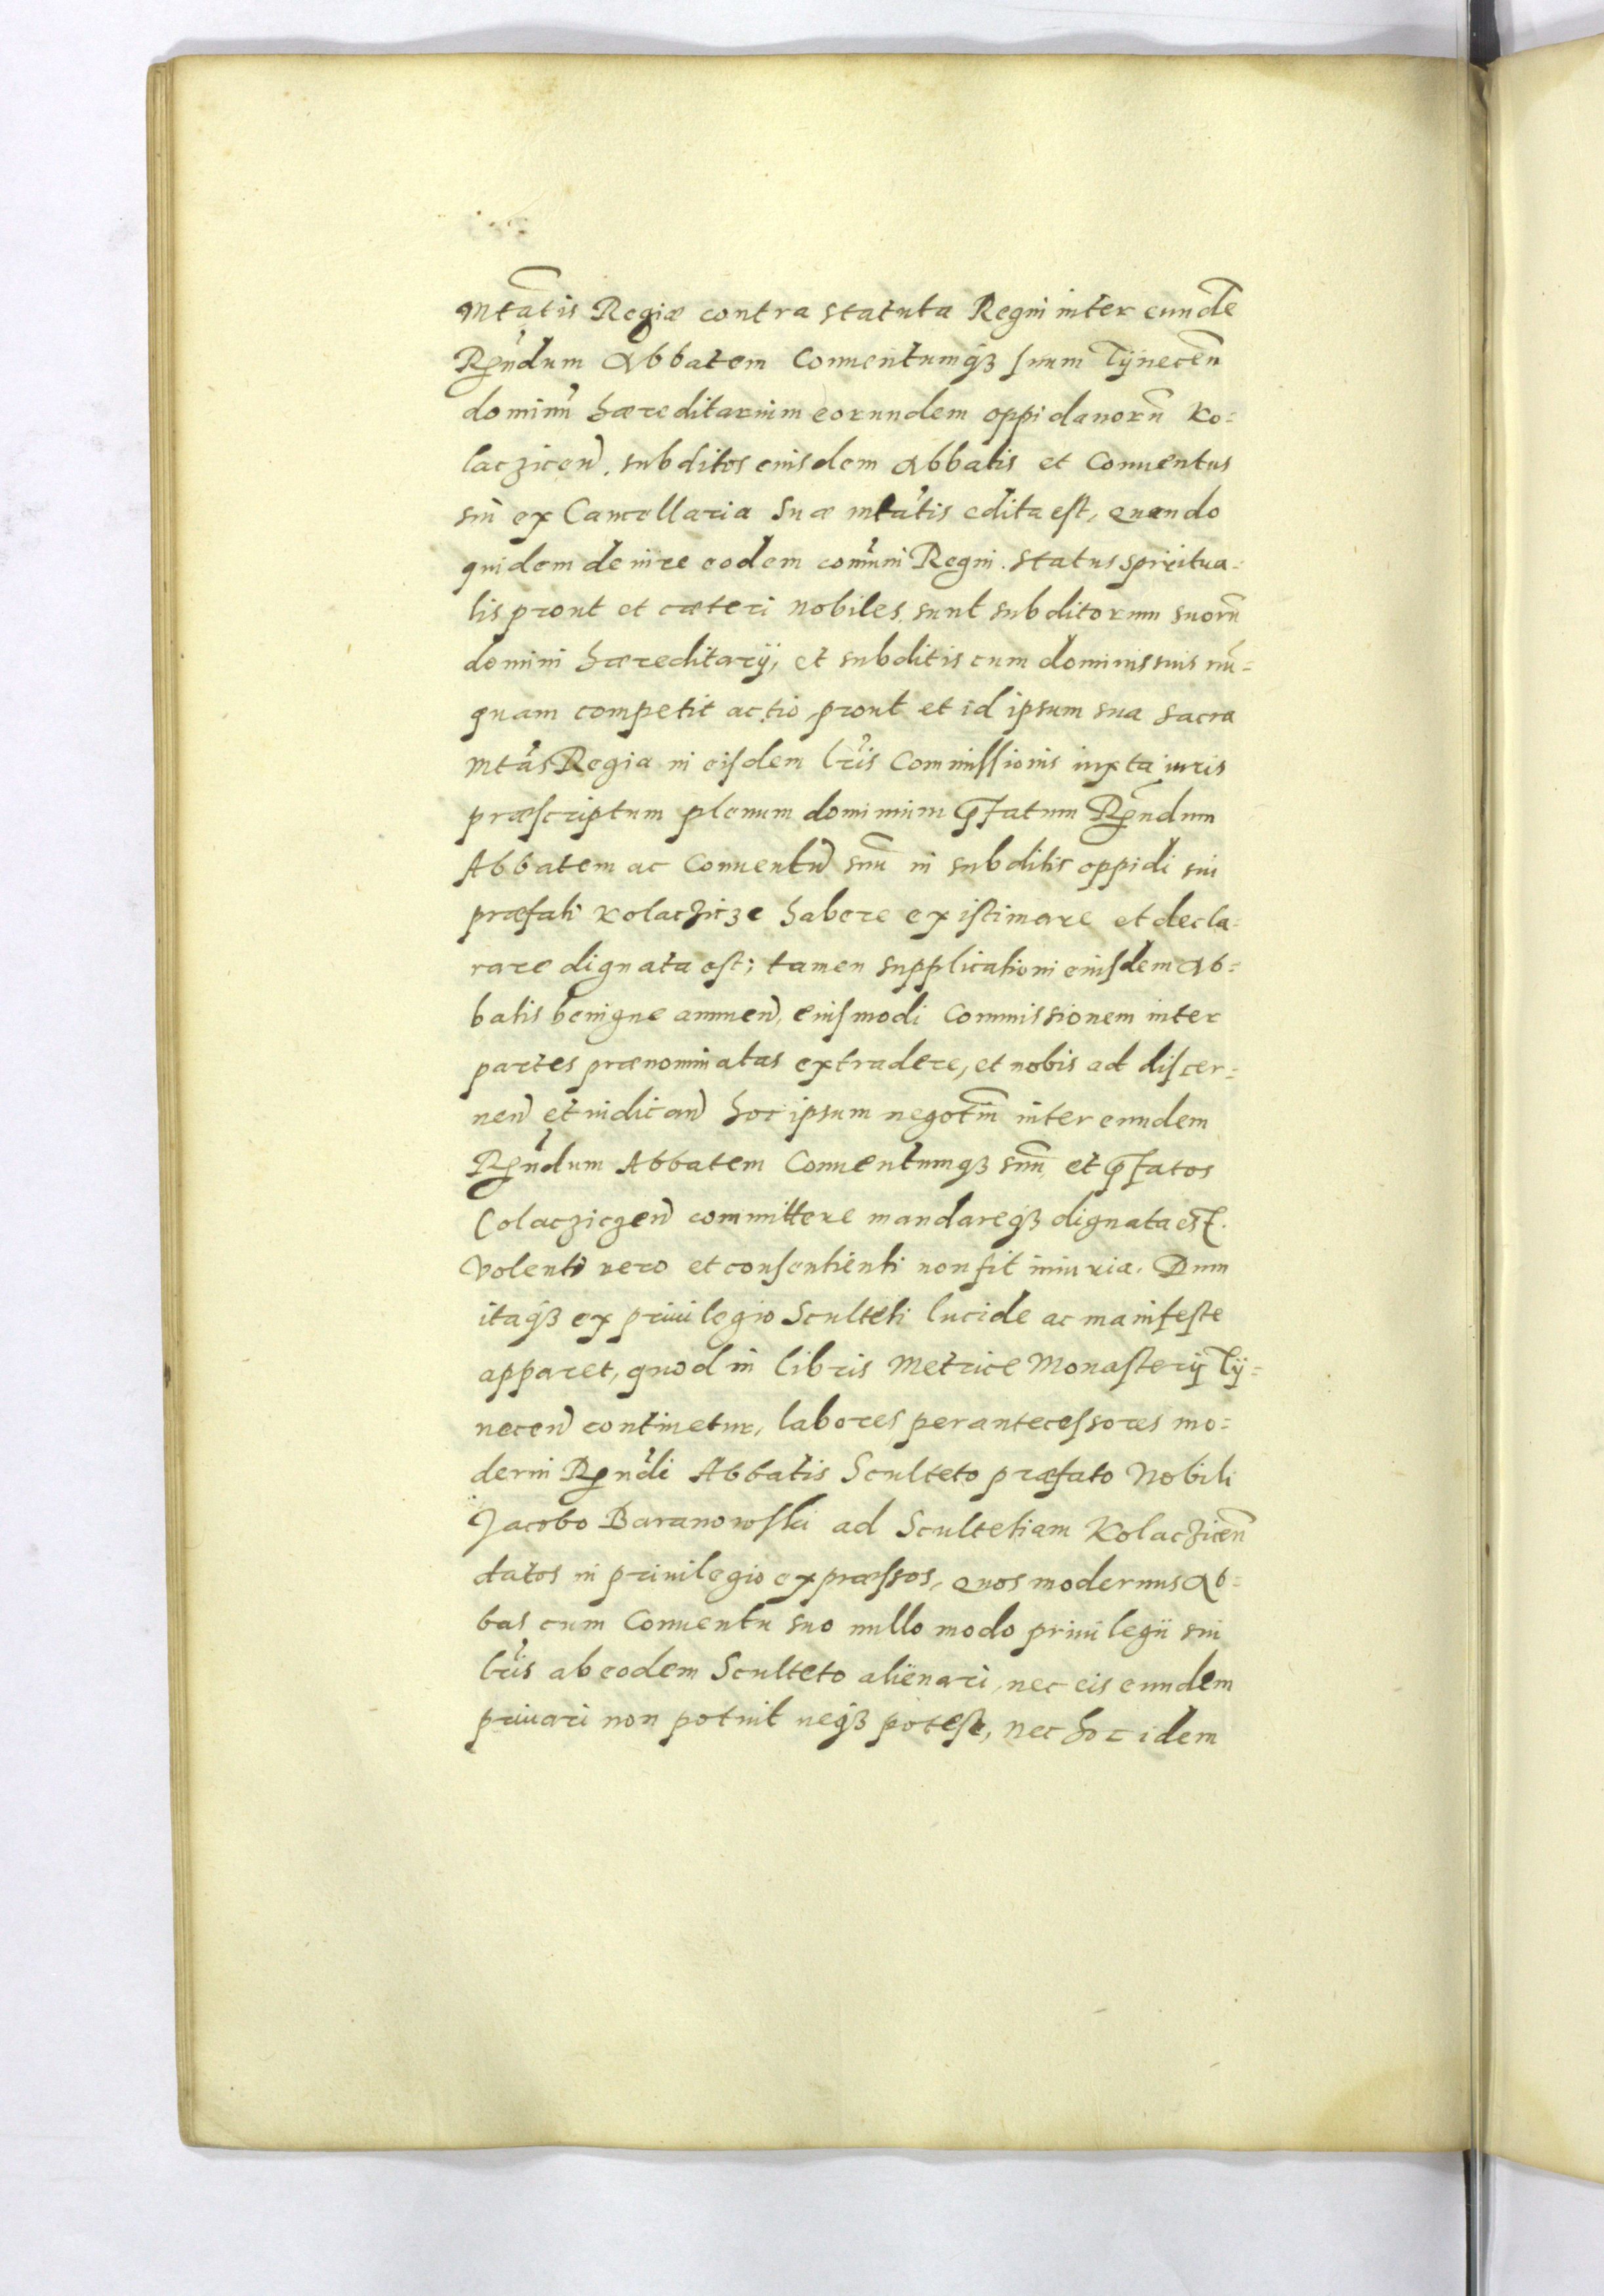 Mtatis Regiæ contra statuta Regni inter eunde
Rndum Abbatem Conuentumqȝ suum Tÿnecen
dominu hæreditarium eorundem oppidanoru Ko=
laczicen. subditos eiusdem Abbatis et Conuentus
sui ex Cancellaria Suæ mtatis edita est, Quando
quidem de iure eodem comuni Regni. Status spiritua=
lis prout et cæteri nobiles sunt subditorum suoru
domini hæreditarÿ, et subditis cum dominis suis nu=
quam competit actio, prout et id ipsum sua Sacra
Mtas Regia in eisdem lris Commissionis iuxta iuris
præscriptum plenum dominium pfatum Rndum
Abbatem ac Conuentu suu in subditis oppidi sui
præfati Kolaczicze habere existimare et decla=
rare dignata est; tamen supplicationi eiusdem Ab=
batis benigne annuen, eiusmodi Commissionem inter
partes prænominatas extradere, et nobis ad discer=
nen et iudican hoc ipsum negotiu inter eundem
Rndum Abbatem Conuentumqȝ suu et pfatos
Colacziczen committere mandareqȝ dignata est.
Volenti vero et consentienti non fit iniuria. Dum
itaqȝ ex priuilegio Sculteti lucide ac manifeste
apparet, quod in libris Metrice Monasterÿ Tÿ=
necen continetur, labores per antecessores mo=
derni Rndi Abbatis Sculteto præfato Nobili
Jacobo Baranowski ad Scultetiam Kolaczicen
datos in priuilegio expræssos, Quos modernus Ab=
bas cum Conuentu suo nullo modo priuilegii sui
lris ab eodem Sculteto alienari, nec eis eundem
priuari non potuit neqȝ potest, nec hoc idem